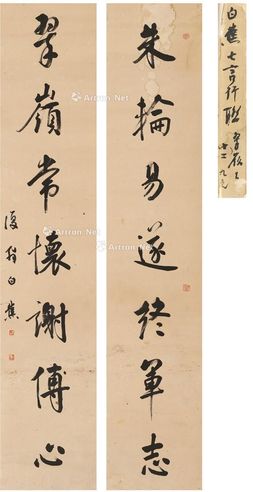 朱輪易遂終軍志
翠嶺常懷謝傅心
復翁白蕉
白蕉七言行聯
Artron.Net
Artron.Net
Artron.Net
Artron.Net